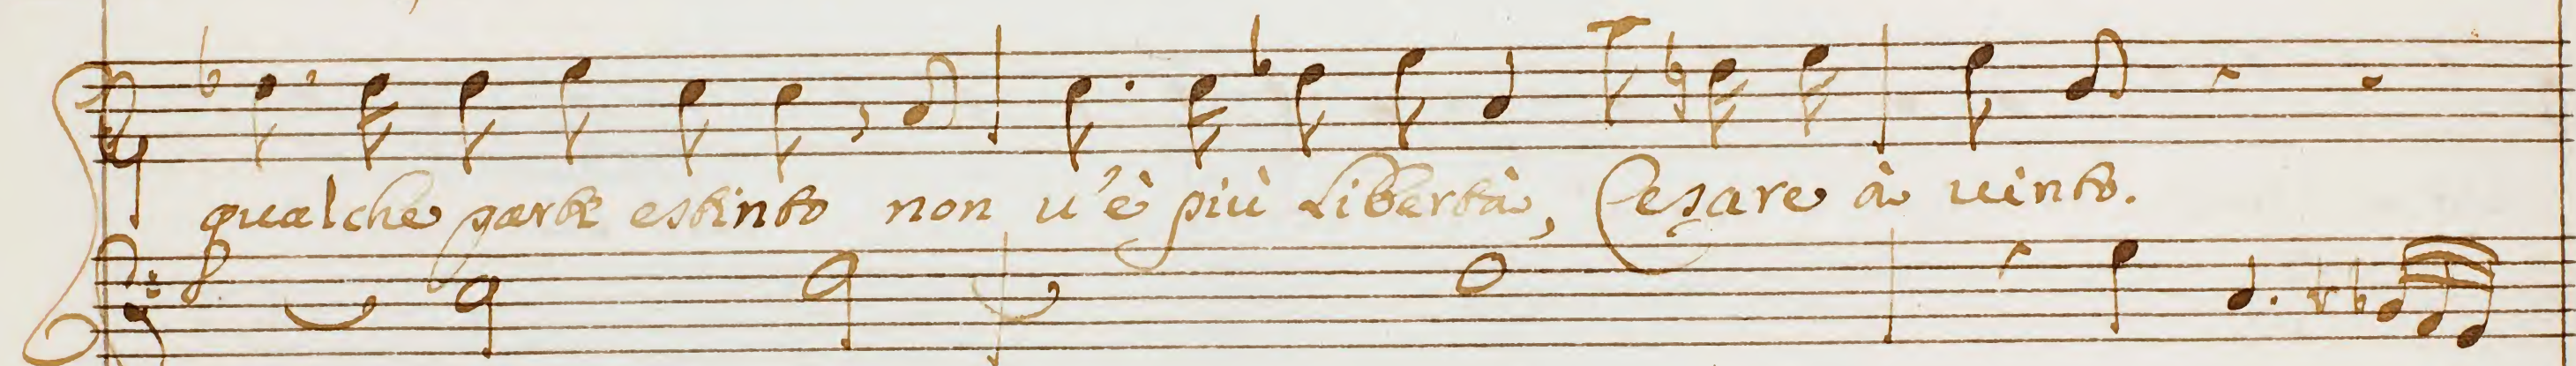 qualche parte estinto non u'è più libertà, Cesare à uinto.